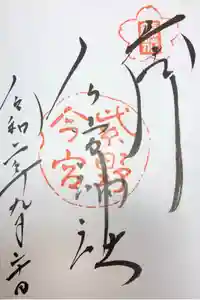 奉拝
今宮神社
紫野
今宮
令和二年九月二十日